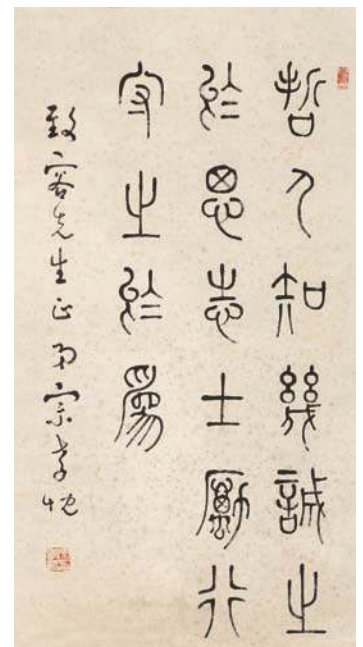 哲人知幾誠之
於思志士勵行
守之於為
致容先生正 弟宗孝忱